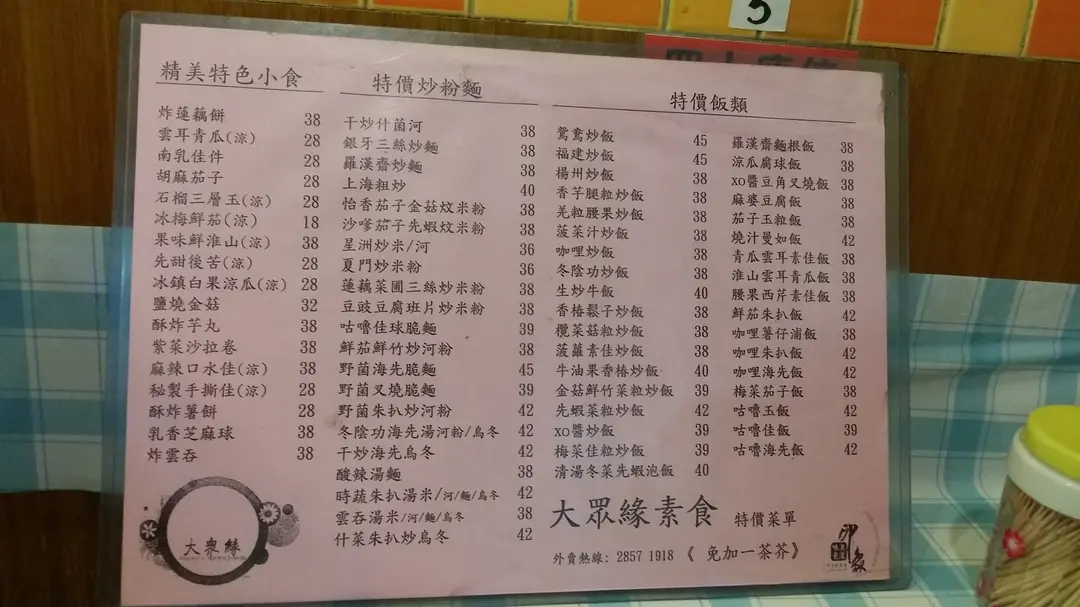 5
精美特色小食
炸蓮藕餅 38
雲耳青瓜(涼) 28
南乳佳件 28
胡麻茄子 28
石榴三層玉(涼) 28
冰梅鮮茄(涼) 18
果味鮮淮山(涼) 38
先甜後苦(涼) 28
冰鎮白果涼瓜(涼) 28
鹽燒金菇 32
酥炸芋丸 38
紫菜沙拉卷 38
麻辣口水佳(涼) 38
秘製手撕佳(涼) 28
酥炸薯餅 28
乳香芝麻球 38
炸雲吞 38
大衆緣
特價炒粉麵
干炒什菌河 38
銀牙三絲炒麵 38
羅漢齋炒麵 38
上海粗炒 40
怡香茄子金菇炆米粉 38
沙嗲茄子先蝦炆米粉 38
星洲炒米/河 36
夏門炒米粉 36
蓮藕菜圃三絲炒米粉 38
豆豉豆腐班片炒米粉 38
咕嚕佳球脆麵 39
鮮茄鮮竹炒河粉 38
野菌海先脆麵 45
野菌叉燒脆麵 39
野菌朱扒炒河粉 42
冬陰功海先湯河粉/烏冬 42
干炒海先烏冬 42
酸辣湯麵 38
時蔬朱扒湯米/河/麵/烏冬 42
雲吞湯米/河/麵/烏冬 38
什菜朱扒炒烏冬 42
特價飯類
鴛鴦炒飯 45
福建炒飯 45
楊州炒飯 38
香芋腿粒炒飯 38
羌粒腰果炒飯 38
菠菜汁炒飯 38
咖哩炒飯 38
冬陰功炒飯 38
生炒牛飯 40
香椿鬆子炒飯 38
欖菜菇粒炒飯 38
菠蘿素佳炒飯 38
牛油果香椿炒飯 40
金菇鮮竹菜粒炒飯 39
先蝦菜粒炒飯 42
xo醬炒飯 39
梅菜佳粒炒飯 39
清湯冬菜先蝦泡飯 40
羅漢齋麵根飯 38
涼瓜腐球飯 38
xo醬豆角叉燒飯 38
麻婆豆腐飯 38
茄子玉粒飯 38
燒汁曼如飯 42
青瓜雲耳素佳飯 38
淮山雲耳青瓜飯 38
腰果西芹素佳飯 38
鮮茄朱扒飯 42
咖哩薯仔浦飯 38
咖哩朱扒飯 42
咖哩海先飯 42
梅菜茄子飯 38
咕嚕玉飯 42
咕嚕佳飯 39
咕嚕海先飯 42
大眾緣素食 特價菜單
外賣熱線: 2857 1918 《 免加一茶芥》